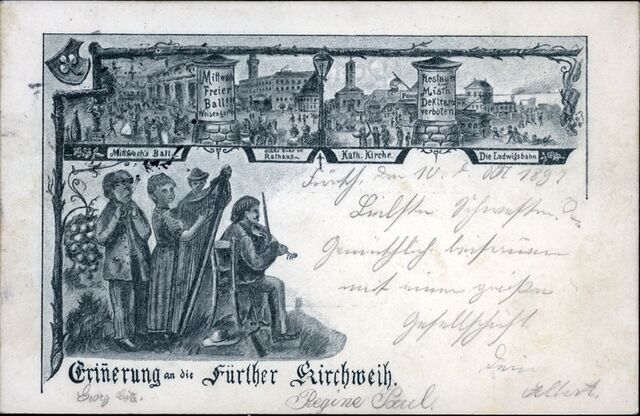 Mittwoch
Freier
Ball
Weisengarten
Restaur
Misth
DeKtram
verboten.
Mittwoch's Ball.
Rathaus.
Kath. Kirche.
Die Ludwigsbahn
Fürth, den 10. Okt 1897
Liebste Schwester.
Gemüthlich beisamen
mit einer großen
Gesellschaft
Dein
Albert.
Eriñerung an die Fürther Kirchweih.
Georg
Regine Paul.